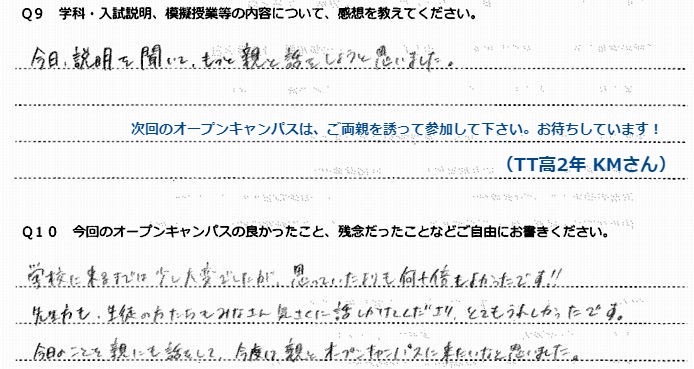 Q９　学科・入試説明、模擬授業等の内容について、感想を教えてください。
今日、説明を聞いて、もっと親と話をしようと思いました。
次回のオープンキャンパスは、ご両親を誘って参加して下さい。お待ちしています！
（TT高2年 KMさん）
Q１０　今回のオープンキャンパスの良かったこと、残念だったことなどご自由にお書きください。
学校に来るまでは少し大変でしたが、思っていたよりも何十倍もよかったです!!
先生方も、生徒の方たちもみなさん気さくに話しかけてくださり、とてもうれしかったです。
今日のことを親にも話をして、今度は親とオープンキャンパスに来たいなと思いました。